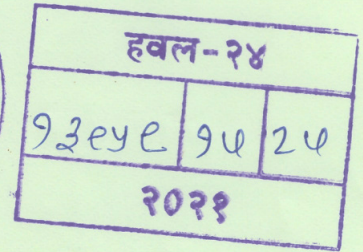 हवल-२४
१३९५९ १५ २५
२०२१